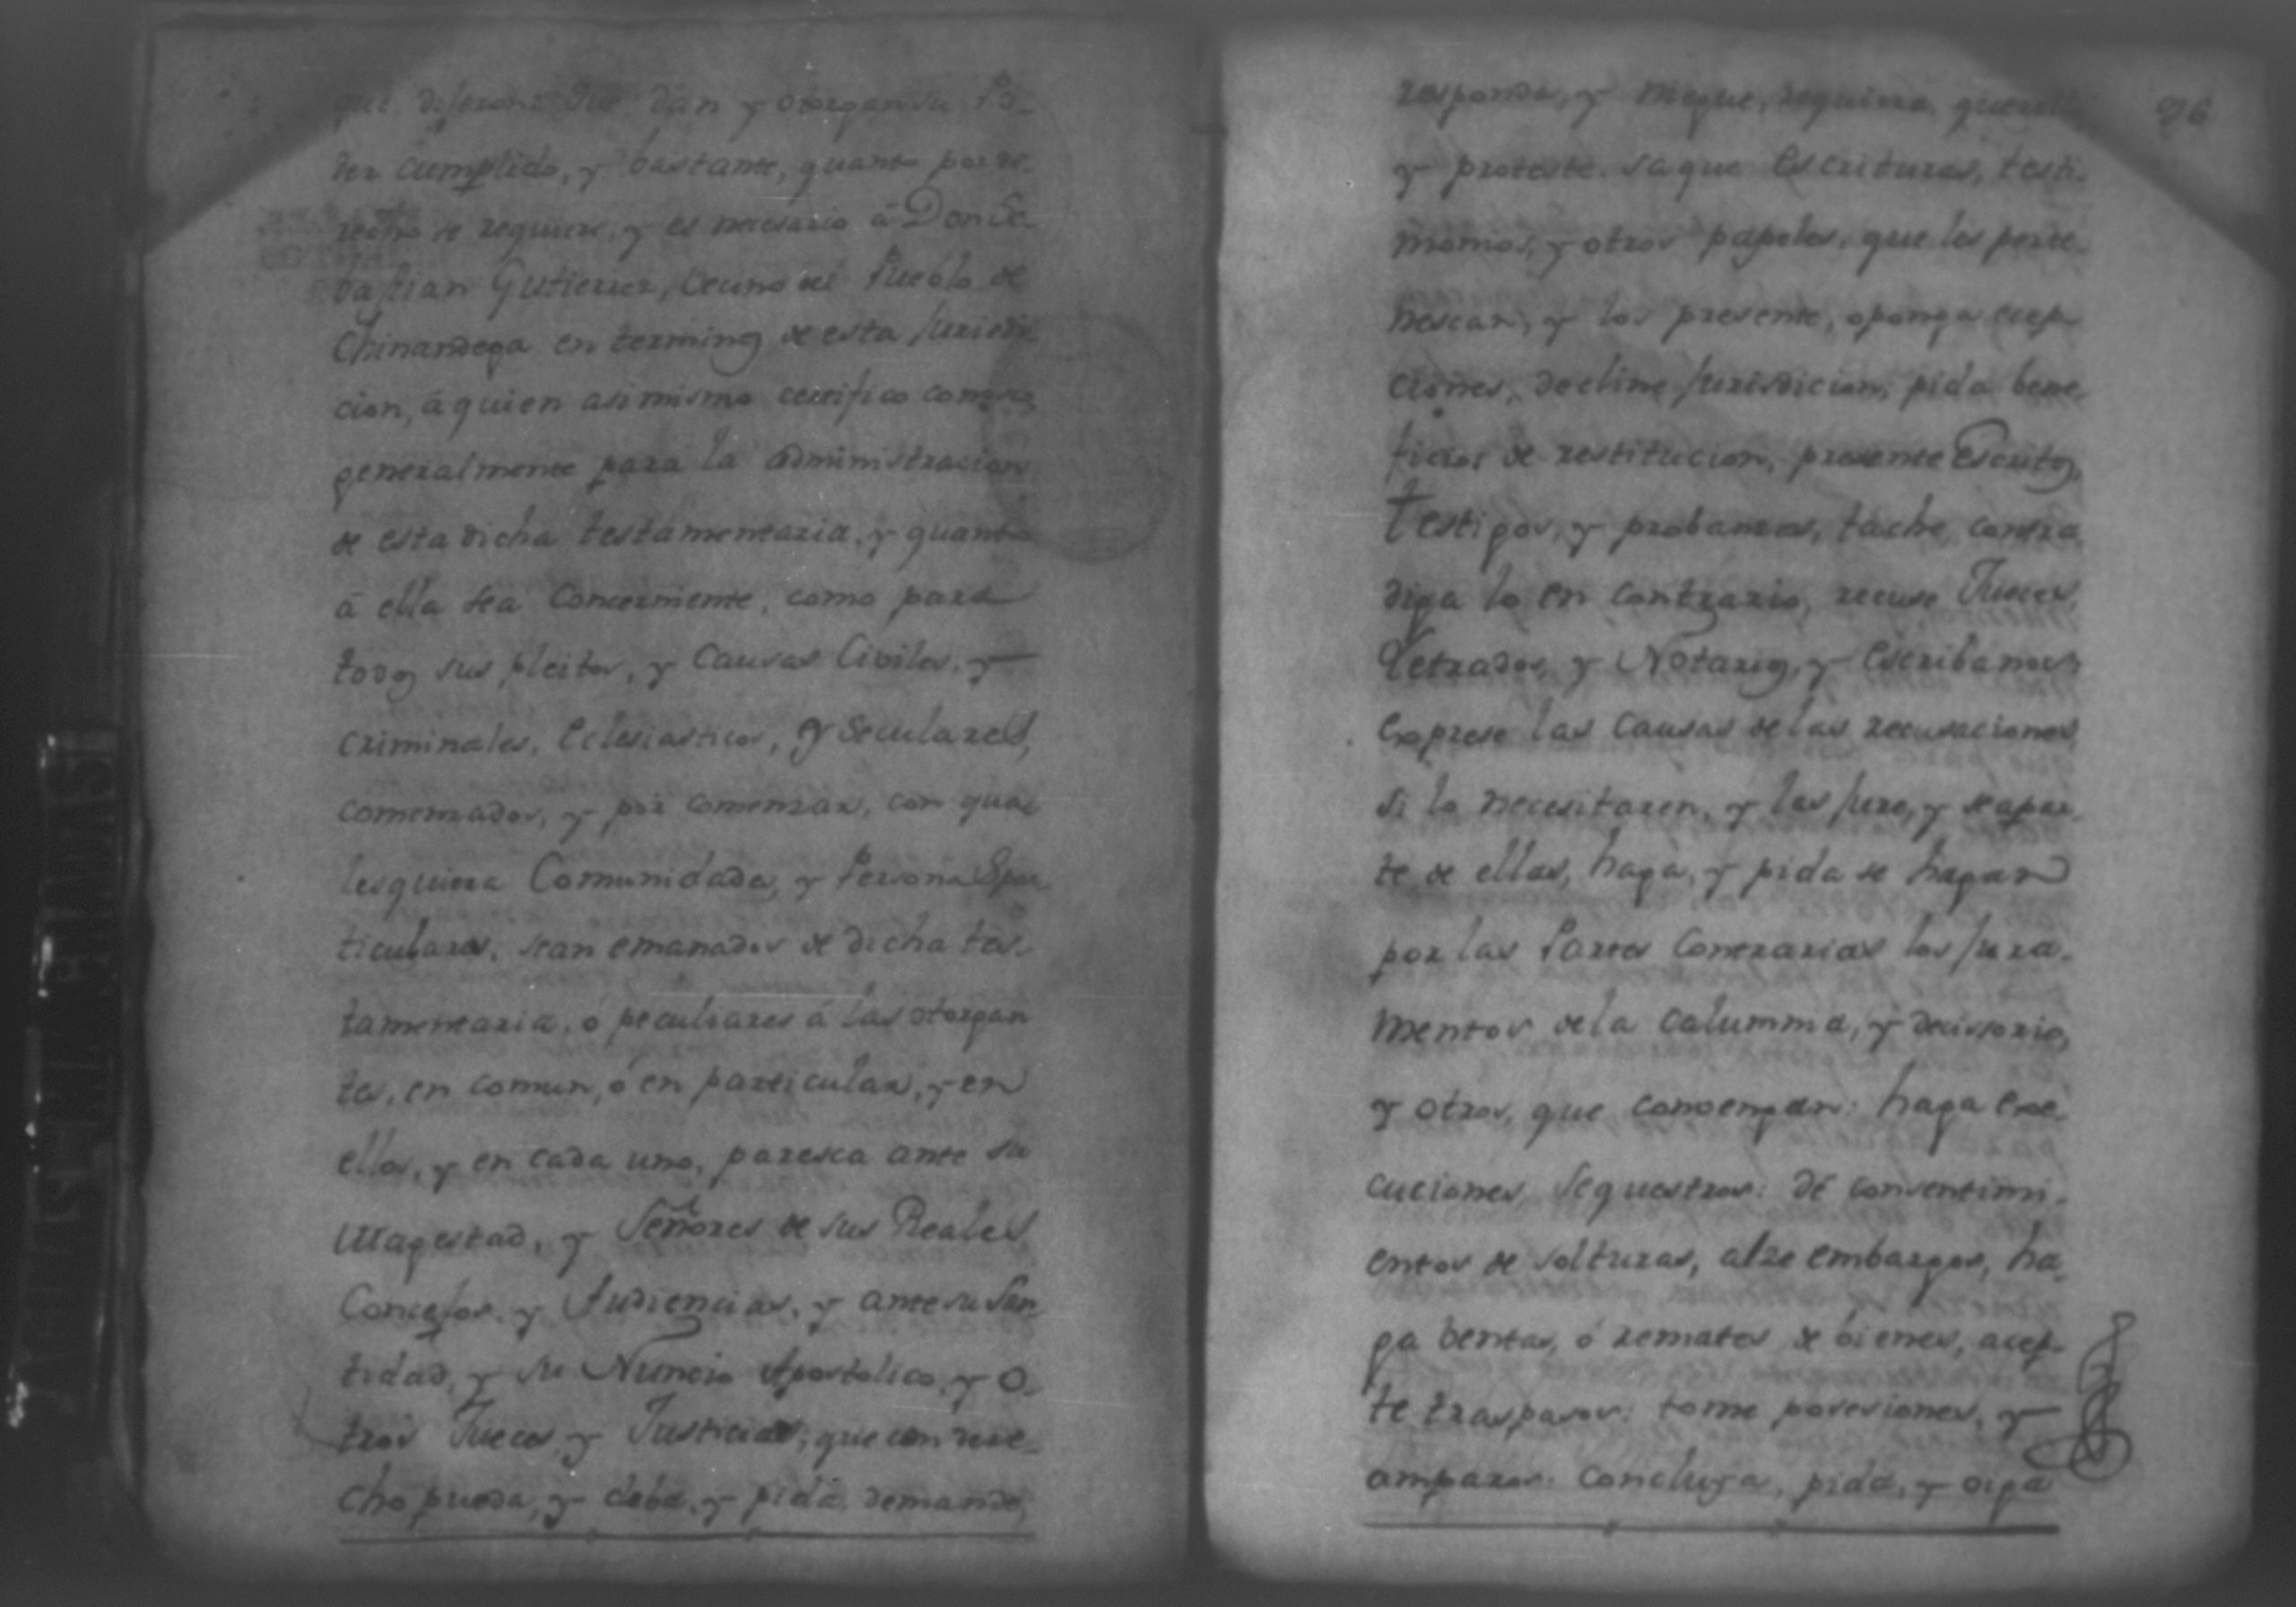 que dijeron: Que dan y otorgan su Po-
der cumplido, y bastante, quanto por de-
recho se requiere, y es necesario â Don Se-
bastian Gutierrez, vecino del Pueblo de
Chinandega en terminos de esta Jurisdi-
cion, â quien asimismo certifico conosco
generalmente para la administracion
de esta dicha testamentaria, y quanto
â ella sea Concerniente, como para
todos sus pleitos, y Causas Civiles, y
criminales, Eclesiasticos, y Seculares,
comenzados, y por comenzar, con qua-
lesquiera Comunidades, y Personas par-
ticulares, sean emanados de dicha tes-
tamentaria, ó peculiares â las otorgan
tes, en comun, ó en particular, y en
ellos, y en cada uno, paresca ante su
Magestad, y Señores de sus Reales
Concejos, y Audiencias, y ante su San-
tidad, y su Nuncio Apostolico, y O-
tros Jueces y Justicias, que con dere-
cho pueda, y deba, y pida, demande,
96
responda, y niegue, requiera
y proteste. saque Escrituras, testi-
monios, y otros papeles, que les perte-
nescan, y los presente, oponga ecep-
ciones, decline Jurisdicion, pida bene-
ficios de restitucion, presente Escritos,
Testigos, y probanzas, tache, contra
diga lo en contrario, recuse Jueces,
Letrados, y Notarios, y Escribanos,
Exprese las Causas de las recusaciones
si lo necesitaren, y las Jure, y se apar-
te de ellas, haga, y pida se hagan
por las Partes Contrarias los Jura-
mentos de la calumnia, y decissorio,
y otros, que convengan: haga Exe-
cuciones, Sequestros: dé consentimi-
entos de solturas, alze embargos, ha-
ga bentas, ó remates de bienes, acep-
te traspasos: tome posesiones, y
amparos. Concluya, pida, y oiga